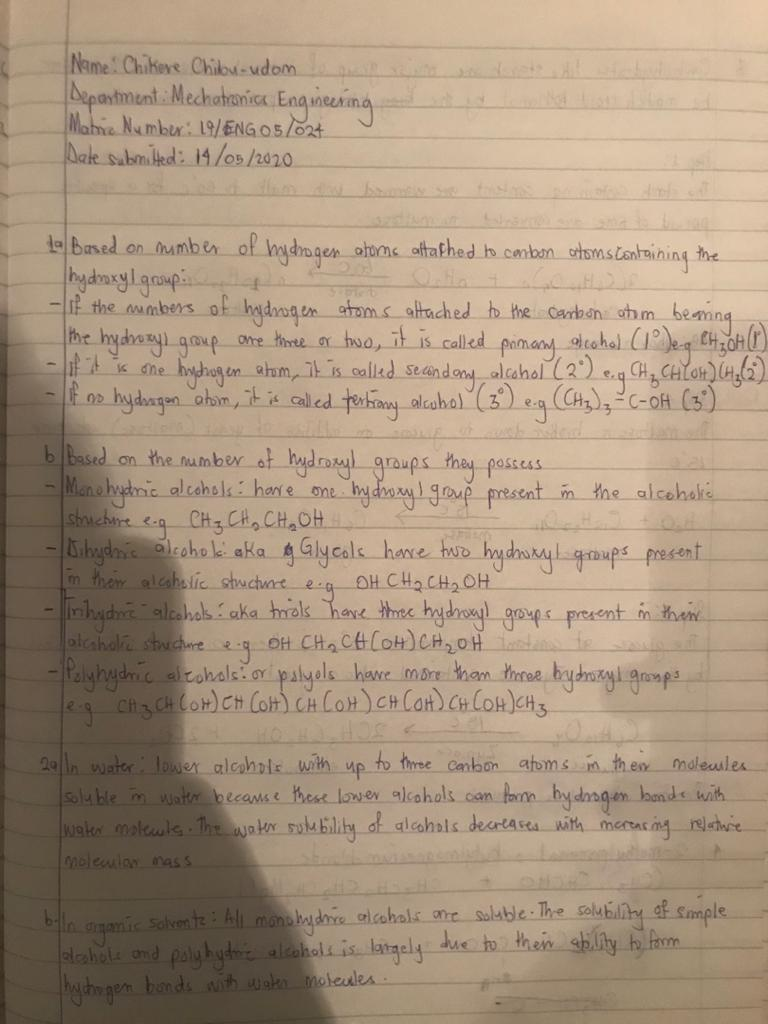 Name: Chikere Chibu-udom
Department: Mechatronics Engineering
Matric Number: 19/ENG05/024
Date submitted: 14/05/2020
1a Based on number of hydrogen atoms attached to carbon atoms containing the
hydroxyl group:
- If the numbers of hydrogen atoms attached to the carbon atom bearing
the hydroxyl group are three or two, it is called primary alcohol (1°) e.g CH₃OH (1°)
- If it is one hydrogen atom, it is called secondary alcohol (2°) e.g CH₃CH(OH)CH₃(2°)
- If no hydrogen atom, it is called tertiary alcohol (3°) e.g (CH₃)₃-C-OH (3°)
b Based on the number of hydroxyl groups they possess
- Monohydric alcohols: have one hydroxyl group present in the alcoholic
structure e.g CH₃CH₂CH₂OH
- Dihydric alcohols: aka Glycols have two hydroxyl groups present
in their alcoholic structure e.g OHCH₂CH₂OH
- Trihydric alcohols: aka triols have three hydroxyl groups present in their
alcoholic structure e.g OH CH₂CH(OH)CH₂OH
- Polyhydric alcohols: or polyols have more than three hydroxyl groups
e.g CH₃CH(OH)CH(OH)CH(OH)CH(OH)CH(OH)CH₃
2a In water: lower alcohols with up to three carbon atoms in their molecules
soluble in water because these lower alcohols can form hydrogen bonds with
water molecules. The water solubility of alcohols decreases with increasing relative
molecular mass
b. In organic solvents: All monohydric alcohols are soluble. The solubility of simple
alcohols and polyhydric alcohols is largely due to their ability to form
hydrogen bonds with water molecules.